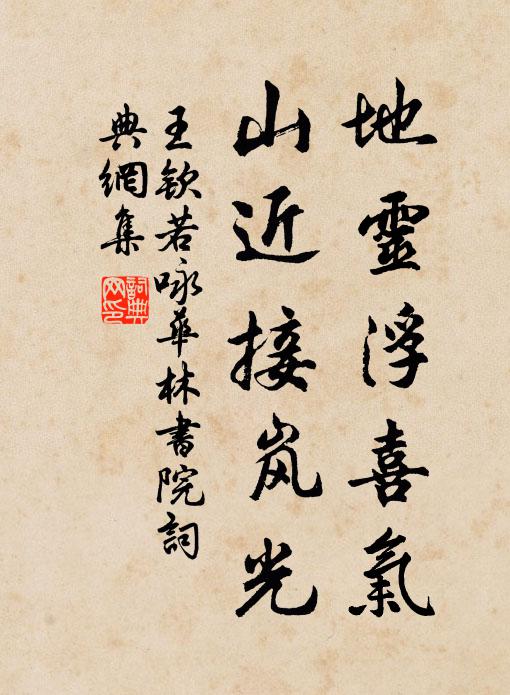 地靈浮喜氣
山近接岚光
王欽若咏華林書院詞
典網集
詞典
网印